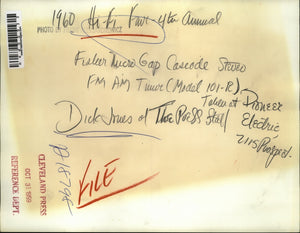 1960 Hi Fi Fair 4th Annual
PHOTO BY
Fisher Micro Gap Cascode Stereo
FM AM Tuner (Model 101-R)
Taken at Pioneer
Electric
2115 Prospect.
Dick Jones of The Press Staff
FILE
CLEVELAND PRESS
OCT 31 1959
REFERENCE DEPT